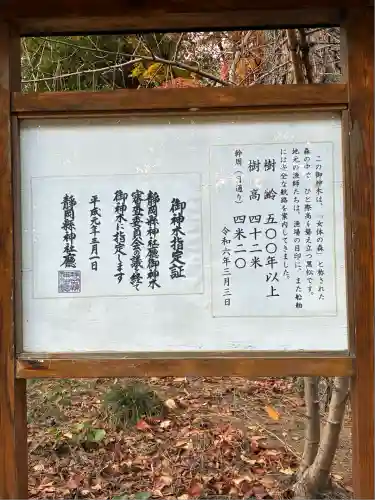 この御神木は、「女体の森」と称された
森の中で、ひと際高く聳え立つ黒松です。
地元の漁師たちは、漁場の目印に、また船舶
には安全な航路を案内してきました。
樹齢 五〇〇年以上
樹高 四十二米
幹周（目通り） 四米二〇
令和六年三月三日
御神木指定証
静岡県神社庁御神木
審査委員会の議を終て
御神木に指定します
平成元年三月一日
静岡縣神社廳